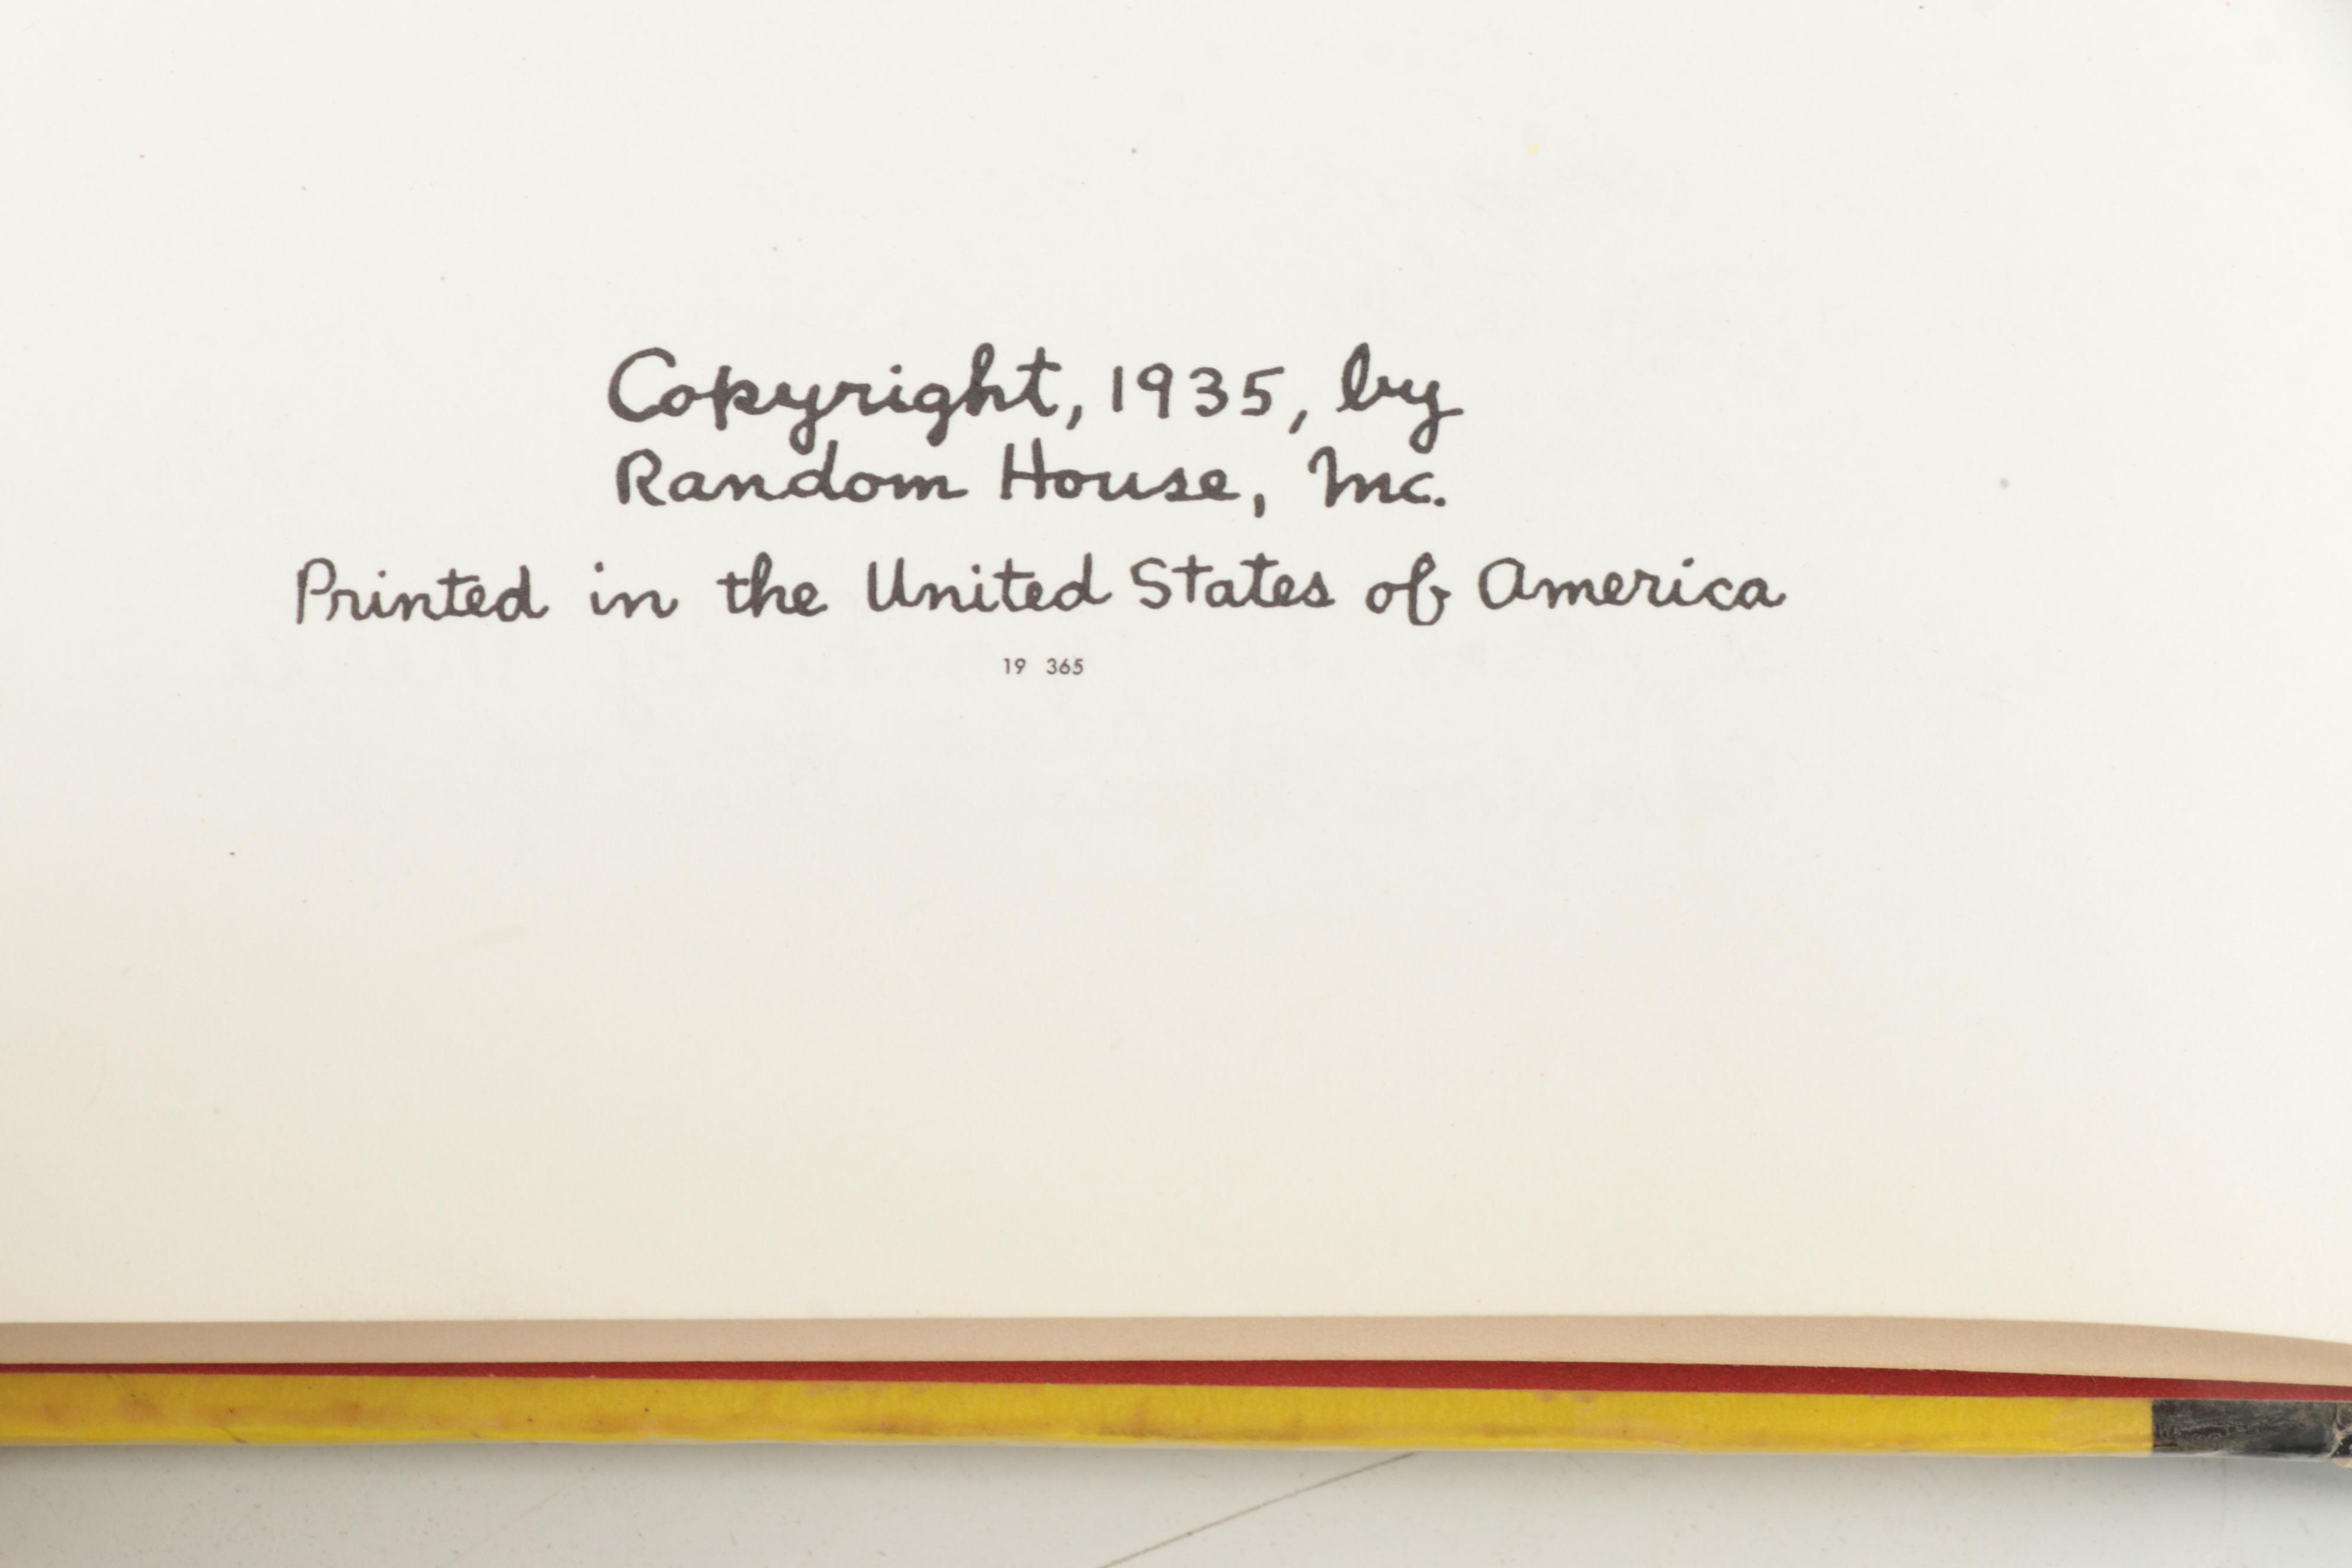 Copyright, 1935, by
Random House, Inc.
Printed in the United States of America
19 365